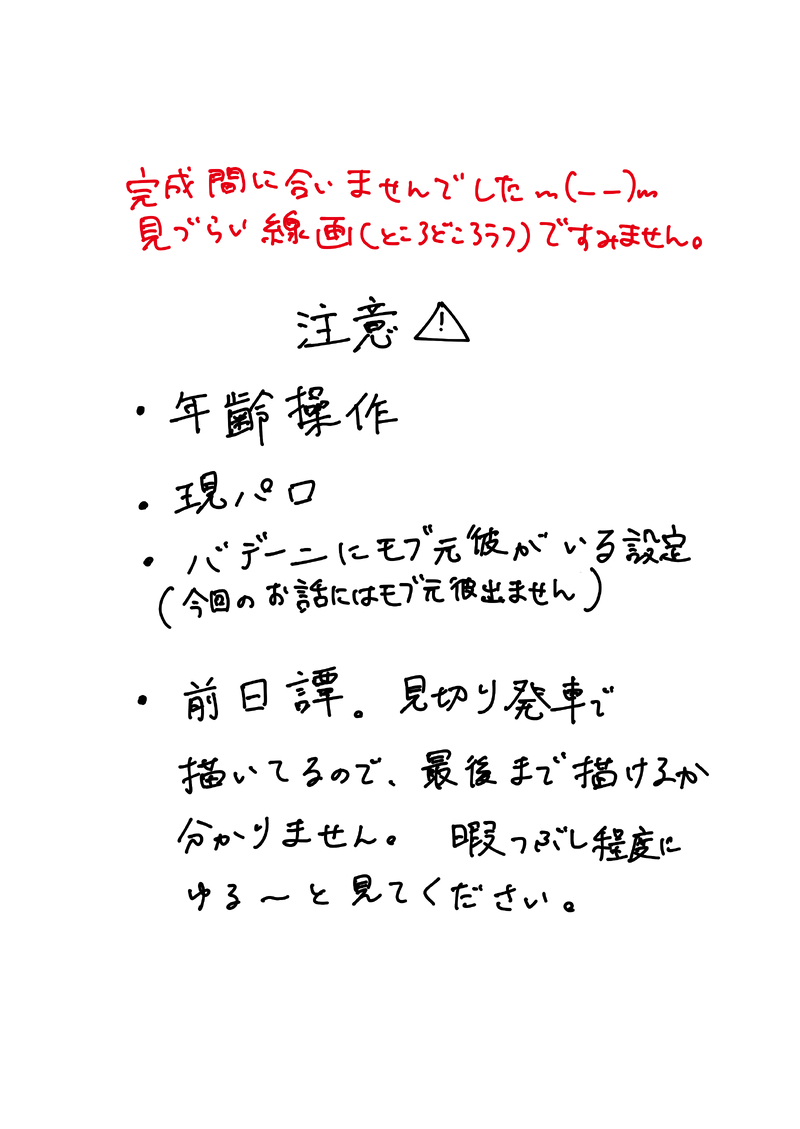 完成間に合いませんでしたm(——)m
見づらい線画(ところどころラフ)ですみません。
注意⚠
・年齢操作
・現パロ
・バデーニにモブ元彼がいる設定
(今回のお話にはモブ元彼出ません)
・前日譚。見切り発車で
描いてるので、最後まで描けるか
分かりません。暇つぶし程度に
ゆる〜と見てください。